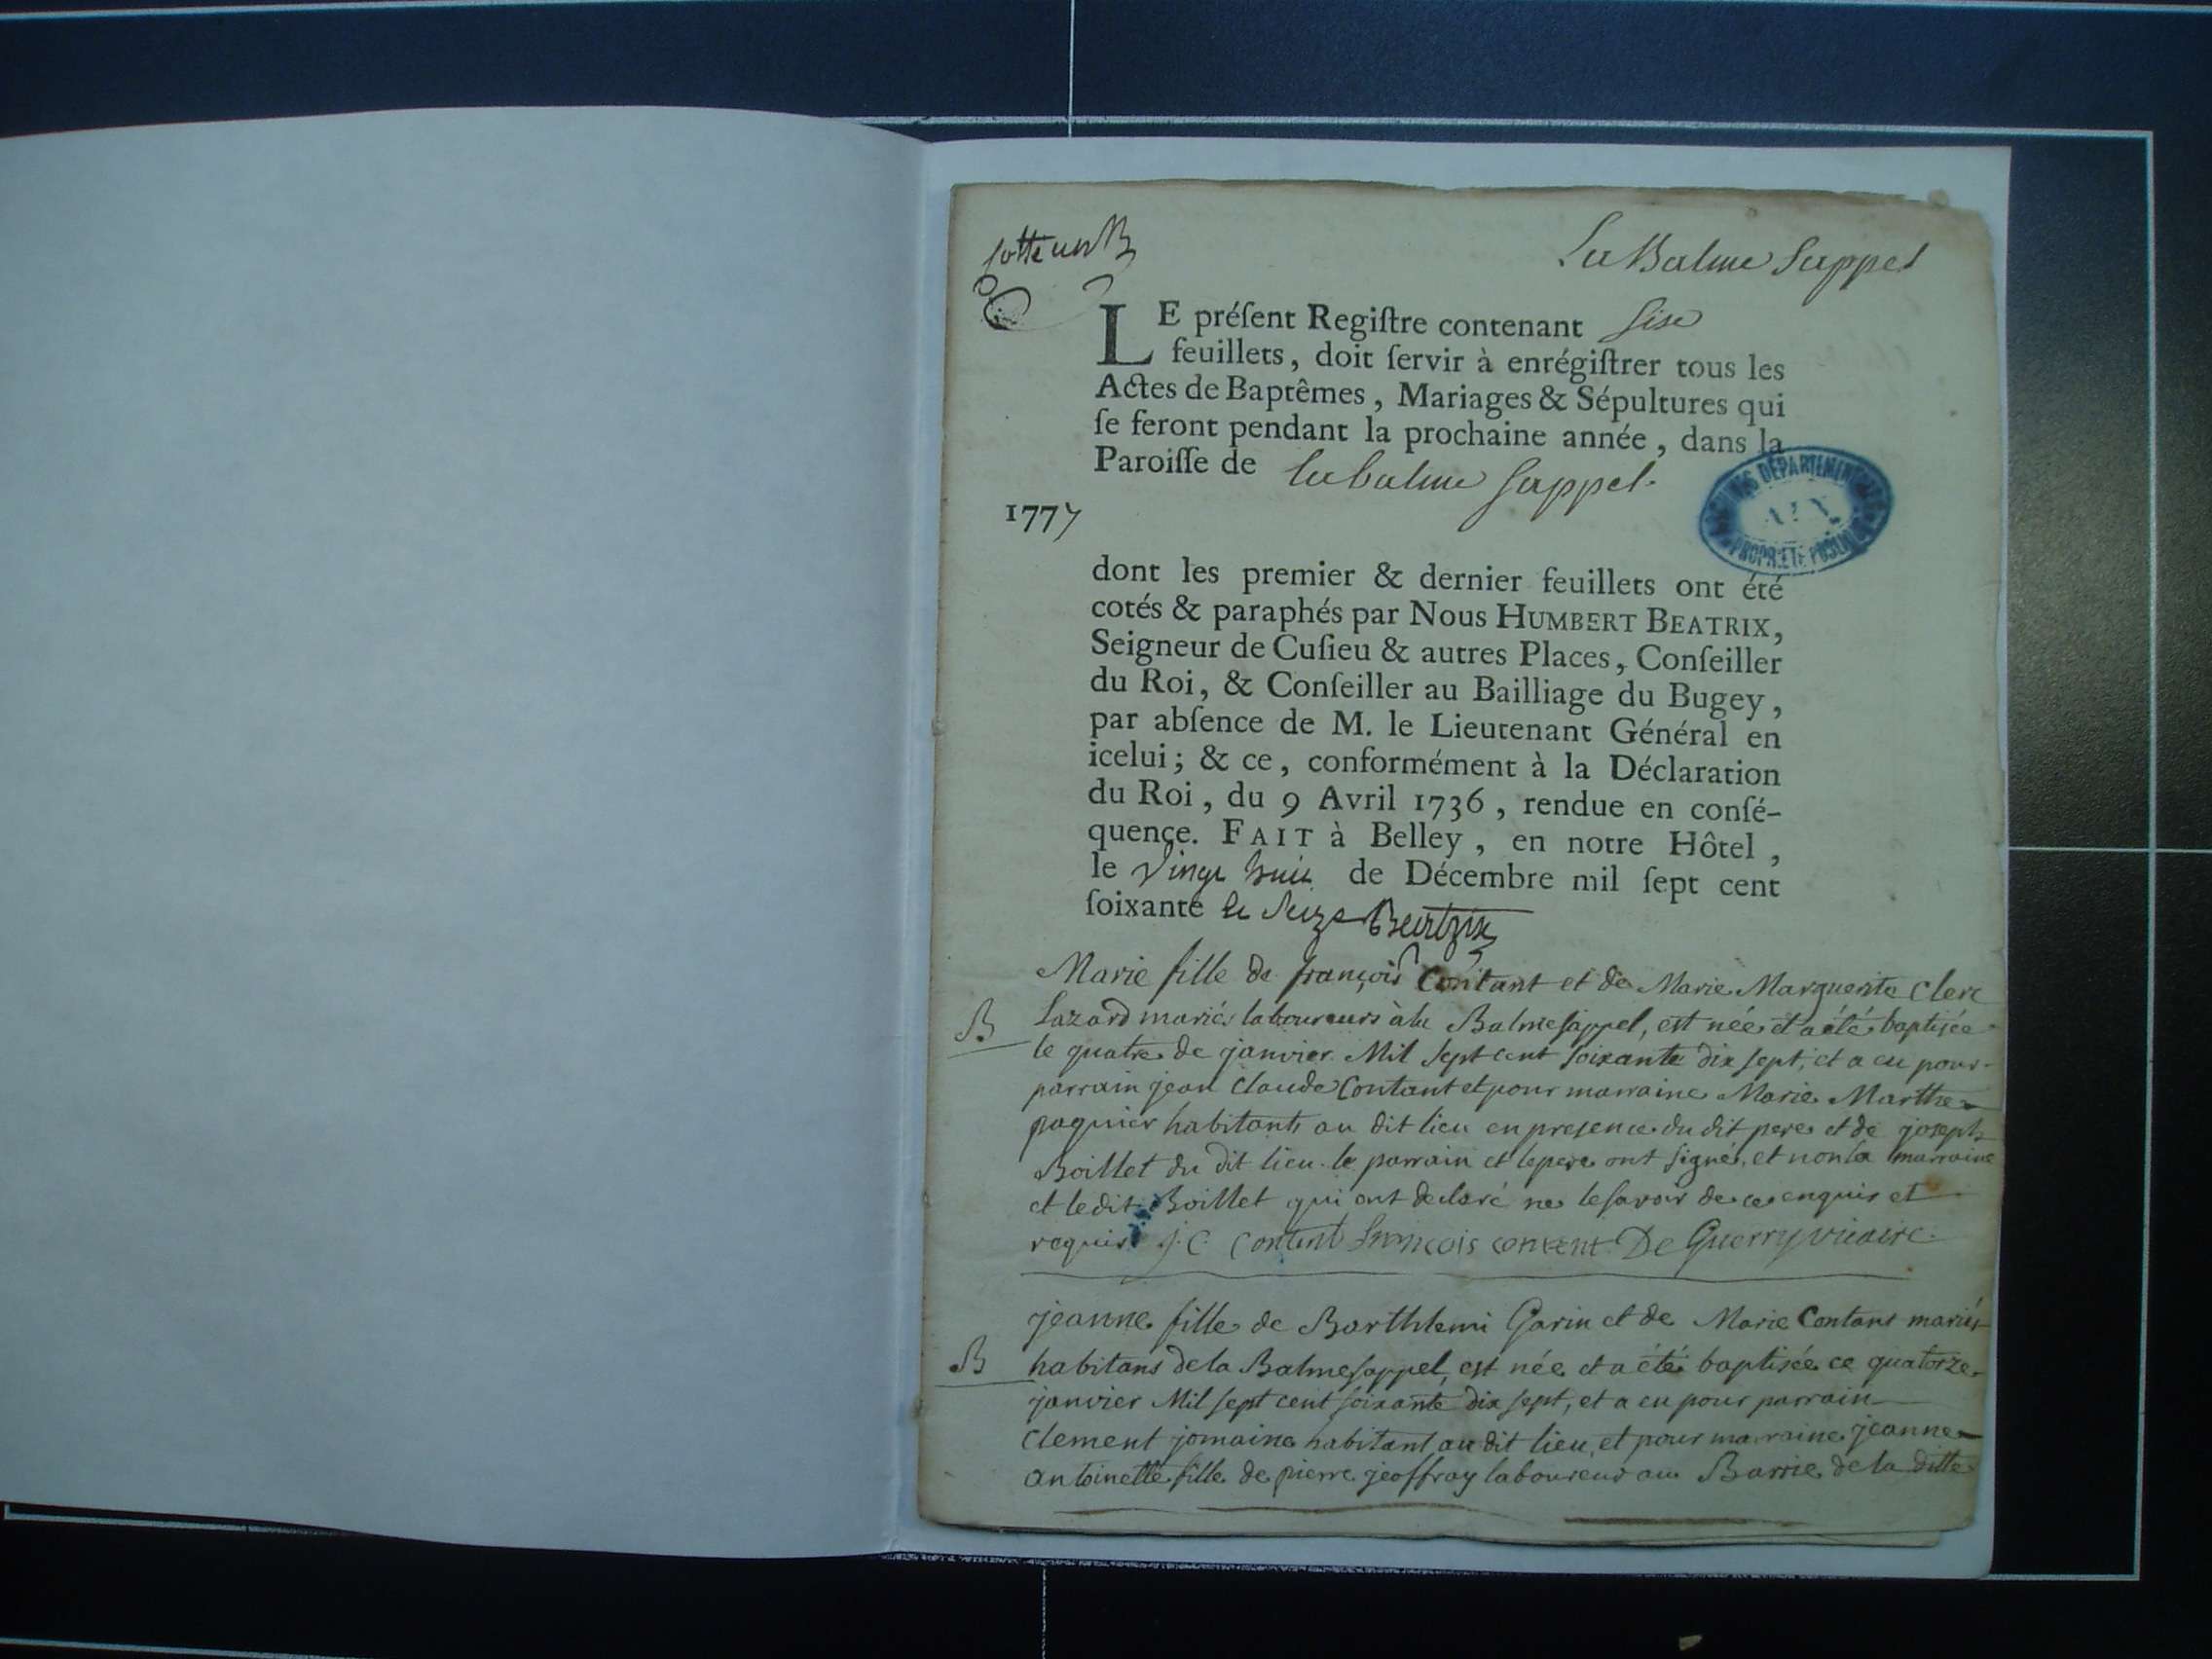 Cotté un B
La Balme Sappel
LE préſent Regiſtre contenant Sise
feuillets, doit ſervir à enrégiſtrer tous les
Actes de Baptêmes, Mariages & Sépultures qui
ſe feront pendant la prochaine année, dans la
Paroiſſe de La balme Sappel.
1777
ARCHIVES DÉPARTEMENTALES
AIN
PROPRIÉTÉ PUBLIQUE
dont les premier & dernier feuillets ont été
cotés & paraphés par Nous HUMBERT BEATRIX,
Seigneur de Cuſieu & autres Places, Conſeiller
du Roi, & Conſeiller au Bailliage du Bugey,
par abſence de M. le Lieutenant Général en
icelui; & ce, conformément à la Déclaration
du Roi, du 9 Avril 1736, rendue en conſé-
quence. FAIT à Belley, en notre Hôtel,
le Vingt huit de Décembre mil ſept cent
ſoixante et Seize Beatrix
Marie fille de françois Contant et de Marie Marguerite Clerc
B Lazard mariés laboureurs à la Balmesappel, est née et a été baptisée
le quatre de janvier Mil Sept cent Soixante dix sept, et a eu pour
parrain jean Claude Contant et pour marraine Marie Marthe
paquier habitants au dit lieu en presence du dit pere et de joseph
Boillet du dit lieu. le parrain et le pere ont signé, et non la marraine
et le dit Boillet qui ont declaré ne le savoir de ce enquis et
requis J. C. Contant francois contant De Guerry vicaire.
jeanne fille de Barthlemi Garin et de Marie Contant mariés
B habitans de la Balmesappel, est née et a été baptisée ce quatorze
janvier Mil sept cent soixante dix sept, et a eu pour parrain
Clement jomaine habitant au dit lieu, et pour marraine jeanne
antoinette fille de pierre jeoffray laboureur au Barrie de la ditte